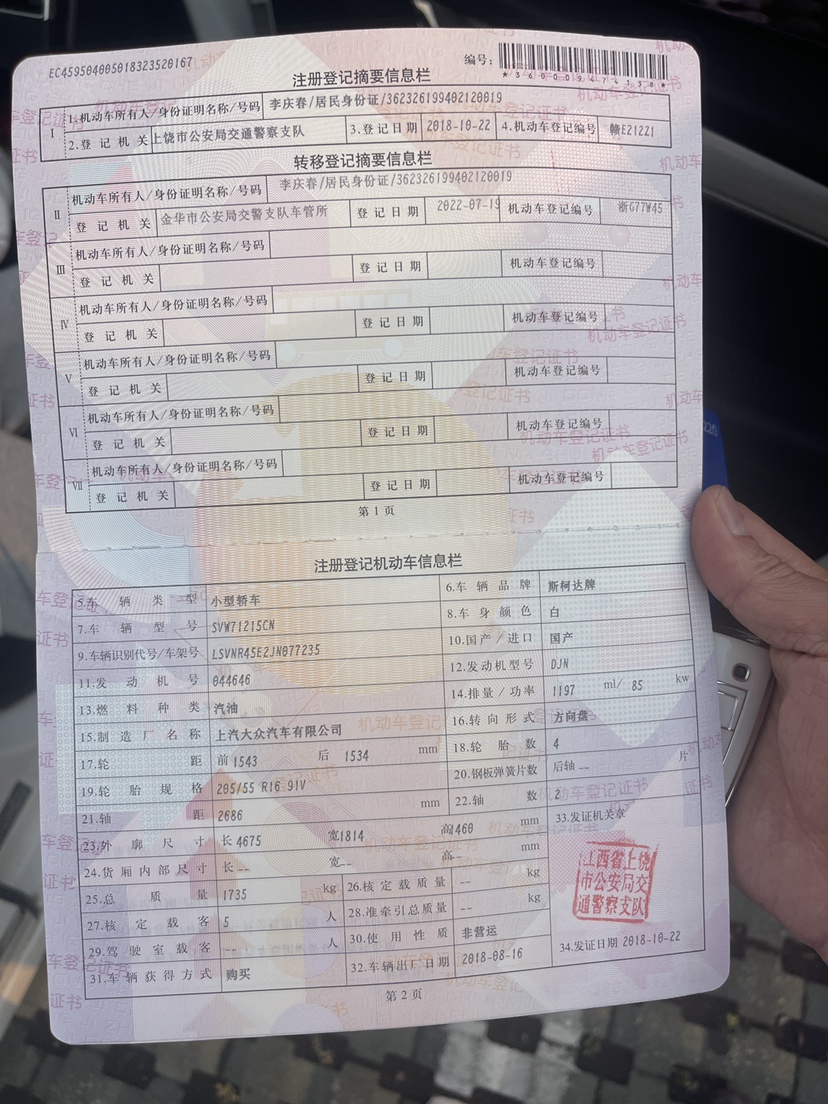 EC4595040050183235 20167
编号:
*360009474338*
注册登记摘要信息栏
Ⅰ 1.机动车所有人/身份证明名称/号码 李庆春/居民身份证/362326199402120019
2.登记机关 上饶市公安局交通警察支队 3.登记日期 2018-10-22 4.机动车登记编号 赣E212Z1
转移登记摘要信息栏
Ⅱ 机动车所有人/身份证明名称/号码 李庆春/居民身份证/362326199402120019
登记机关 金华市公安局交警支队车管所 登记日期 2022-07-19 机动车登记编号 浙G77W45
Ⅲ 机动车所有人/身份证明名称/号码
登记机关 登记日期 机动车登记编号
Ⅳ 机动车所有人/身份证明名称/号码
登记机关 登记日期 机动车登记编号
Ⅴ 机动车所有人/身份证明名称/号码
登记机关 登记日期 机动车登记编号
Ⅵ 机动车所有人/身份证明名称/号码
登记机关 登记日期 机动车登记编号
Ⅶ 机动车所有人/身份证明名称/号码
登记机关 登记日期 机动车登记编号
第1页
注册登记机动车信息栏
5.车辆类型 小型轿车 6.车辆品牌 斯柯达牌
7.车辆型号 SVW71215CN 8.车身颜色 白
9.车辆识别代号/车架号 LSVNR45E2JN077235 10.国产/进口 国产
11.发动机号 044646 12.发动机型号 DJN
13.燃料种类 汽油 14.排量/功率 1197 ml/ 85 kw
15.制造厂名称 上汽大众汽车有限公司 16.转向形式 方向盘
17.轮距 前1543 后 1534 mm 18.轮胎数 4
19.轮胎规格 205/55 R16 91V 20.钢板弹簧片数 后轴 -- 片
21.轴距 2686 mm 22.轴数 2
23.外廓尺寸 长 4675 宽1814 高1460 mm 33.发证机关章
24.货厢内部尺寸 长-- 宽-- 高-- mm
25.总质量 1735 kg 26.核定载质量 -- kg
27.核定载客 5 人 28.准牵引总质量 -- kg
29.驾驶室载客 -- 人 30.使用性质 非营运
31.车辆获得方式 购买 32.车辆出厂日期 2018-08-16 34.发证日期 2018-10-22
江西省上饶
市公安局交
通警察支队
第2页